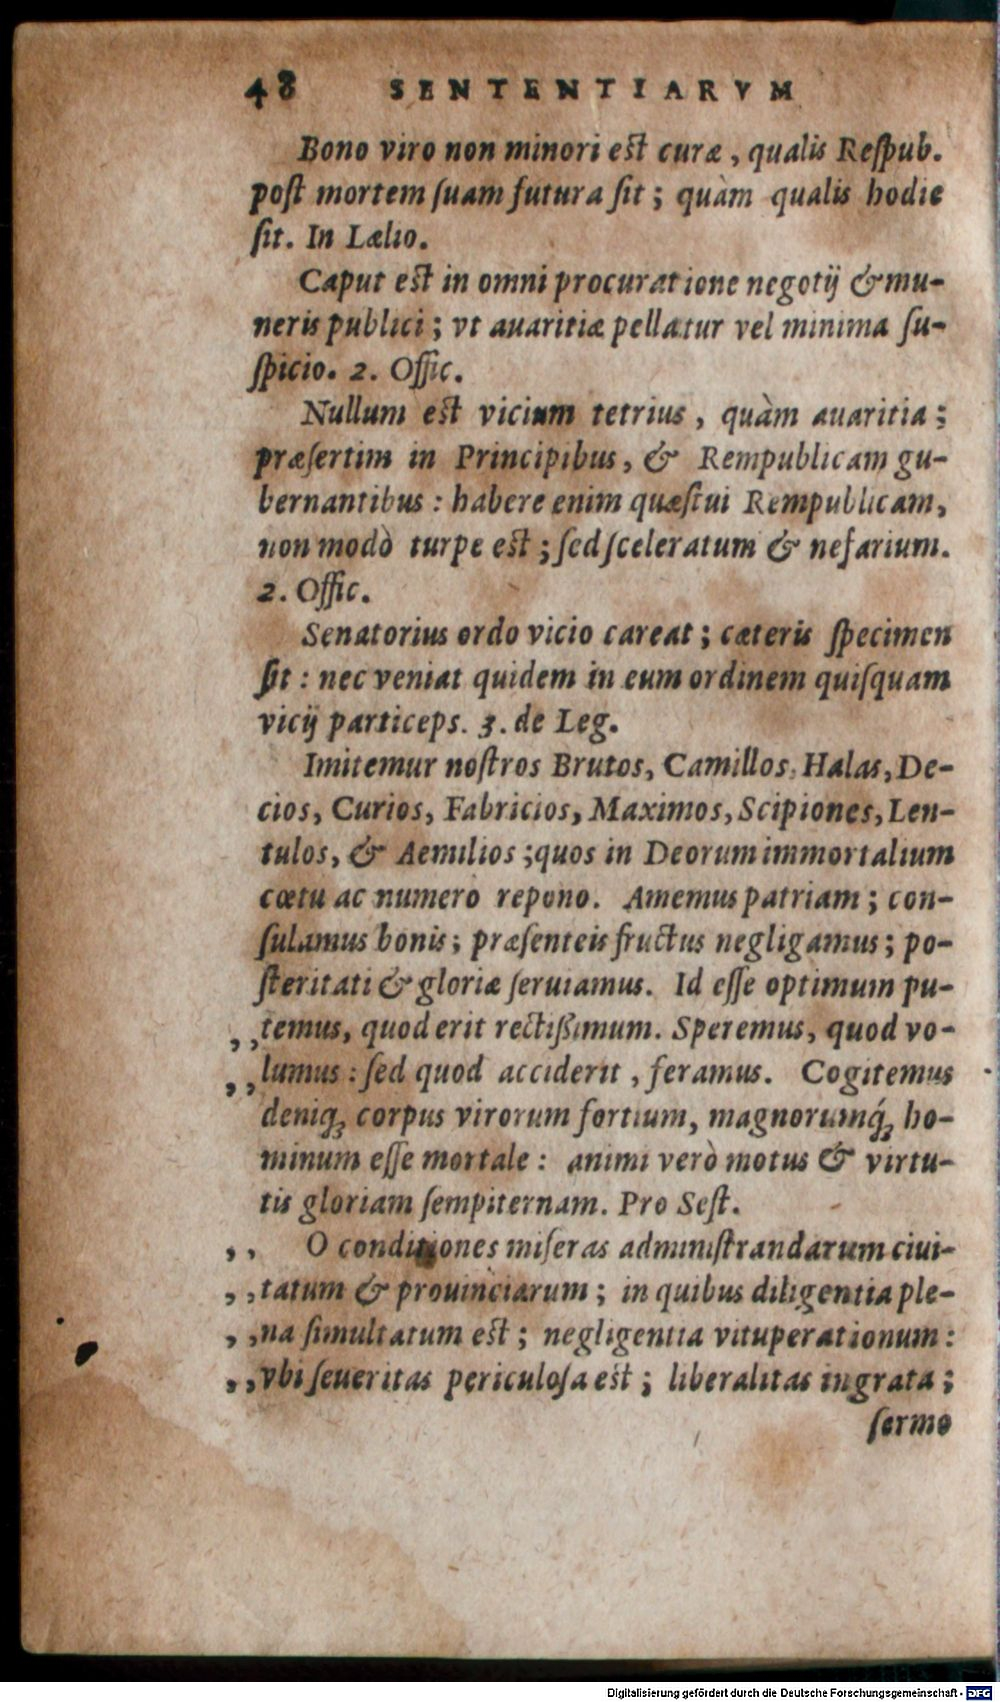 48 SENTENTIARVM
Bono viro non minori est curæ, qualis Respub.
post mortem suam futura sit; quàm qualis hodie
sit. In Lælio.
Caput est in omni procuratione negotij & mu-
neris publici; vt auaritiæ pellatur vel minima su-
spicio. 2. Offic.
Nullum est vicium tetrius, quàm auaritia;
præsertim in Principibus, & Rempublicam gu-
bernantibus: habere enim quæstui Rempublicam,
non modò turpe est; sed sceleratum & nefarium.
2. Offic.
Senatorius ordo vicio careat; cæteris specimen
sit: nec veniat quidem in eum ordinem quisquam
vicij particeps. 3. de Leg.
Imitemur nostros Brutos, Camillos, Halas, De-
cios, Curios, Fabricios, Maximos, Scipiones, Len-
tulos, & Aemilios; quos in Deorum immortalium
cœtu ac numero repono. Amemus patriam; con-
sulamus bonis; præsenteis fructus negligamus; po-
steritati & gloriæ seruiamus. Id esse optimum pu-
,,temus, quod erit rectißimum. Speremus, quod vo-
,,lumus: sed quod acciderit, feramus. Cogitemus
deniq; corpus virorum fortium, magnorumq́; ho-
minum esse mortale: animi verò motus & virtu-
tis gloriam sempiternam. Pro Sest.
,, O conditiones miseras administrandarum ciui-
,,tatum & prouinciarum; in quibus diligentia ple-
,,na simultatum est; negligentia vituperationum:
,,vbi seueritas periculosa est; liberalitas ingrata;
sermo
Digitalisierung gefördert durch die Deutsche Forschungsgemeinschaft - DFG